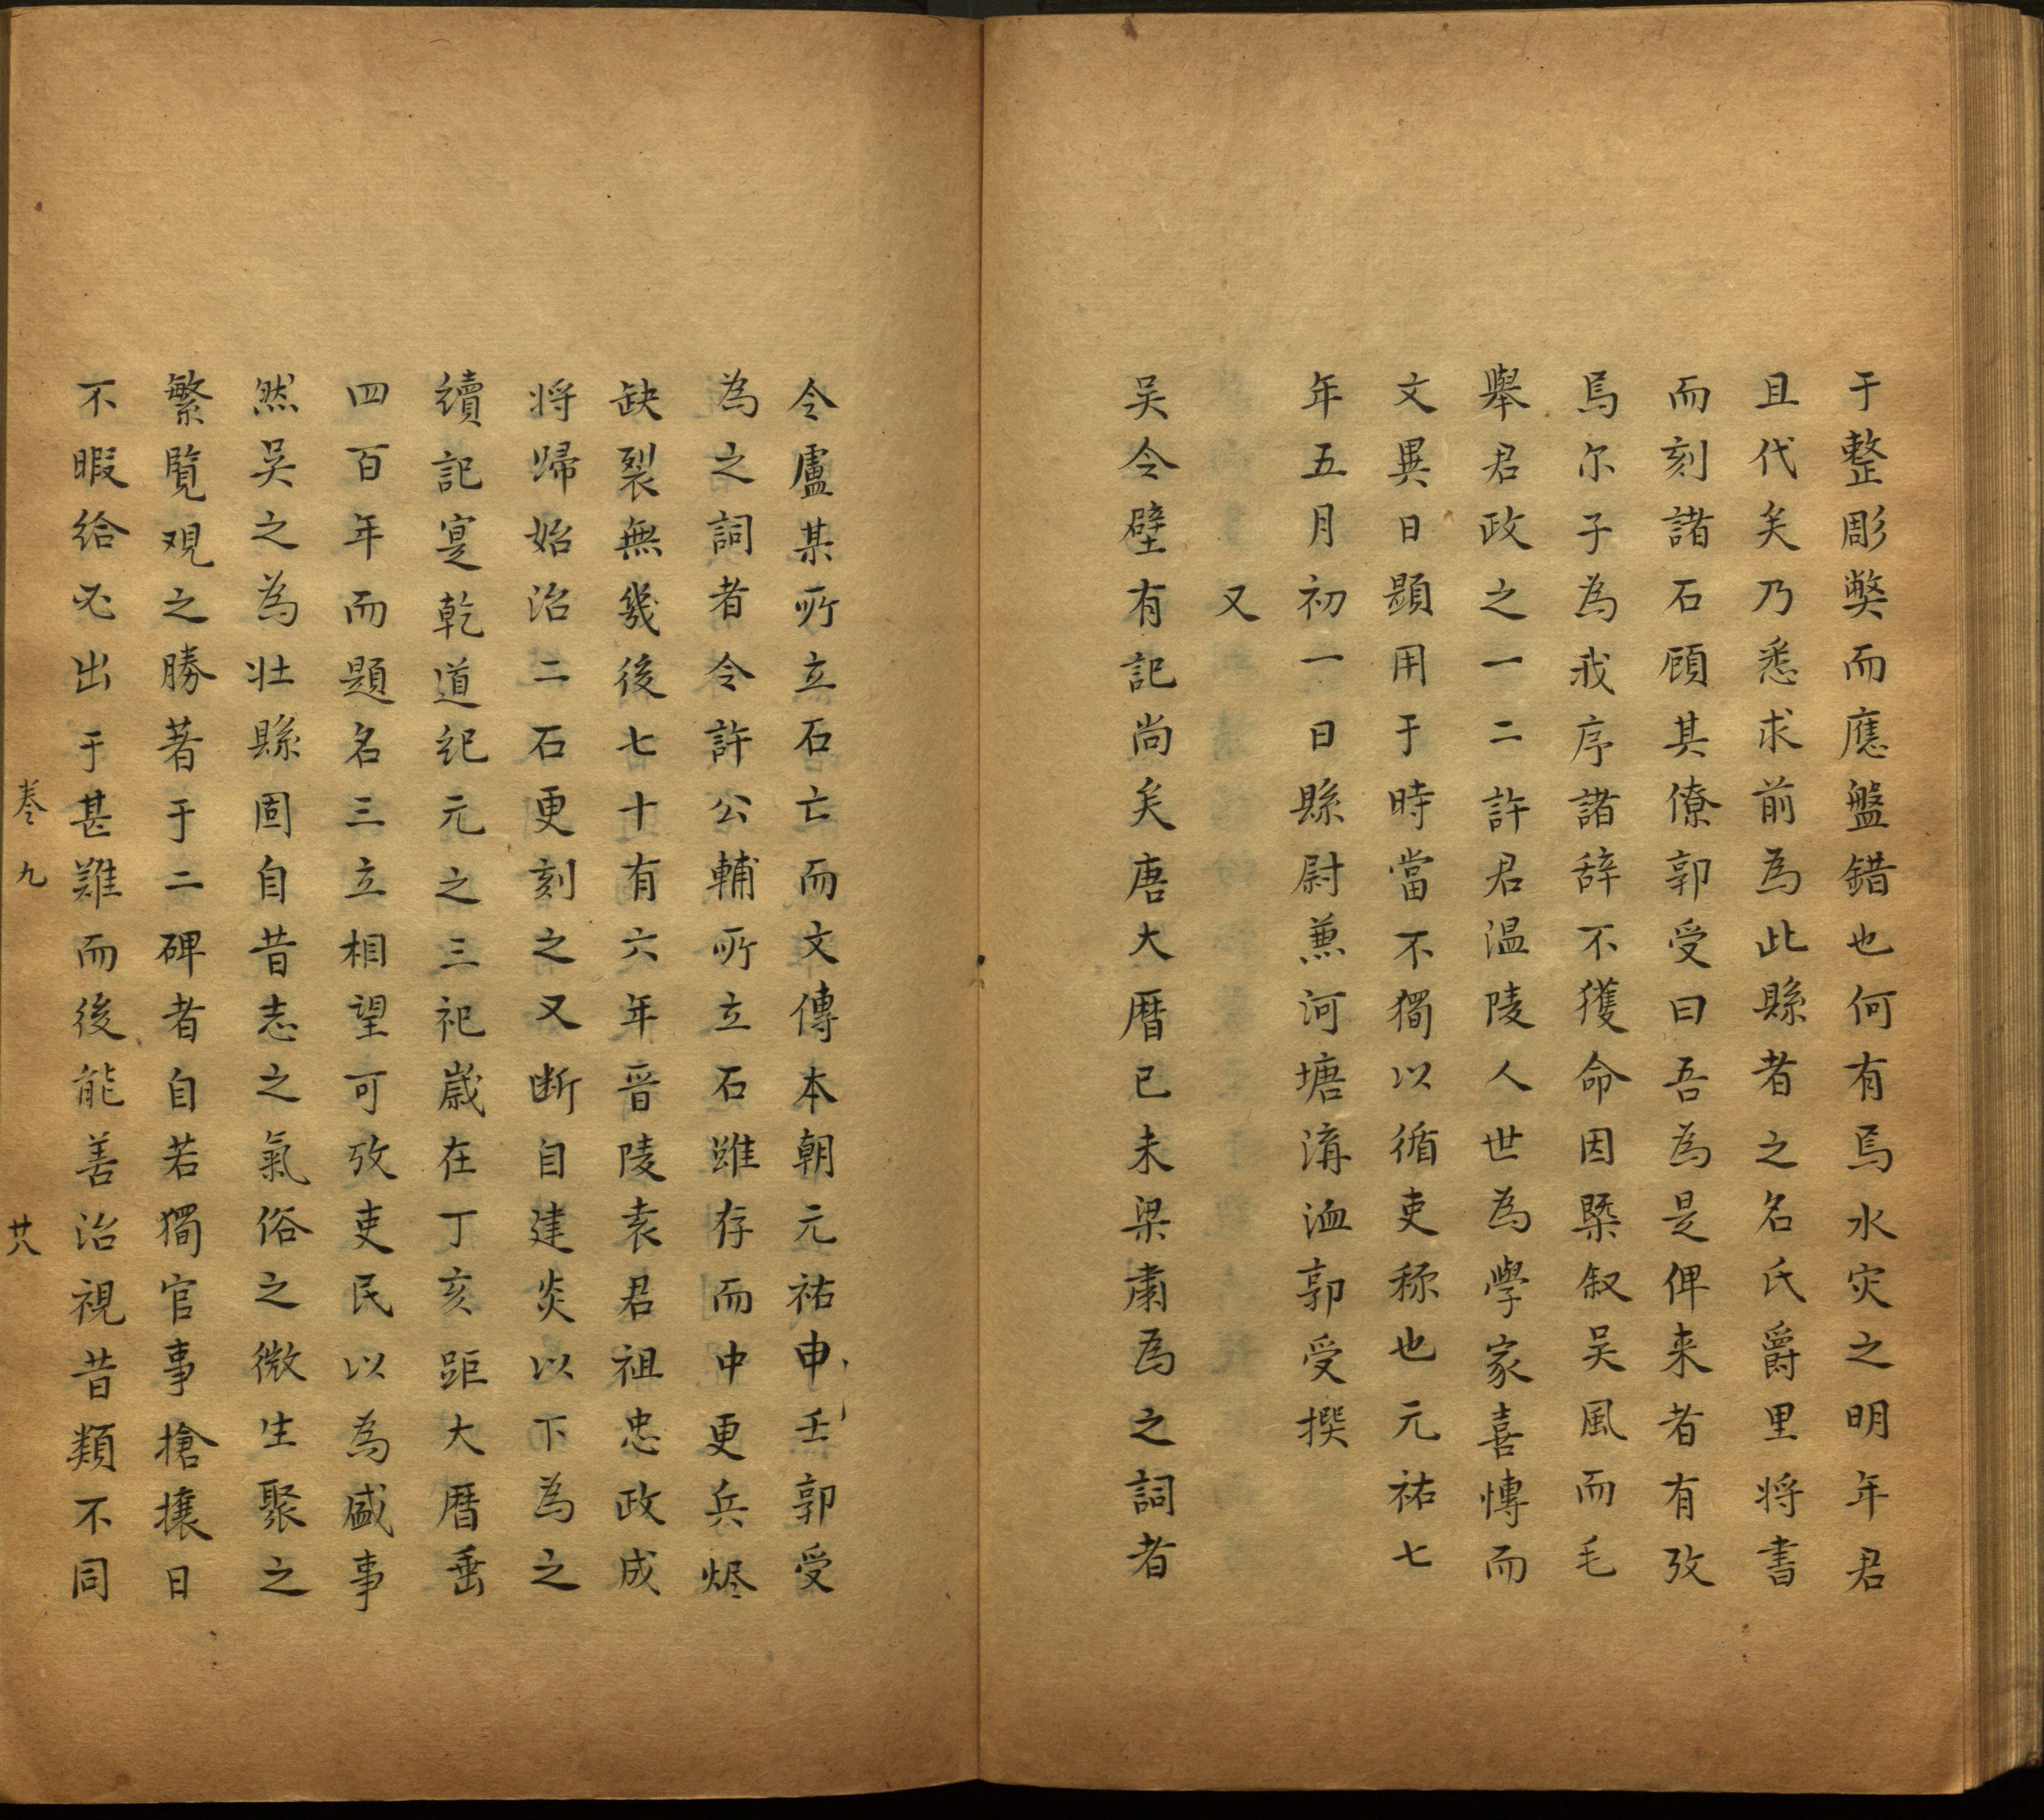 于整彫獘而應盤錯也何有焉水灾之明年君
且代矣乃悉求前為此縣者之名氏爵里将書
而刻諸石顧其僚郭受曰吾為是俾来者有攷
焉尔子為我序諸辞不獲命因槩叙吴風而毛
舉君政之一二許君温陵人世為學家喜愽而
文異日顕用于時當不獨以循吏称也元祐七
年五月初一日縣尉蕪河塘溝洫郭受撰
又
吴令壁有記尚矣唐大暦已未梁肅為之詞者
令盧某所立石亡而文傳本朝元祐申壬郭受
為之詞者令許公輔所立石雖存而中更兵烬
缺裂無幾後七十有六年晋陵袁君祖忠政成
将歸始治二石更刻之又断自建炎以下為之
續記寔乾道紀元之三祀嵗在丁亥距大暦垂
四百年而題名三立相望可攷吏民以為盛事
然吴之為壮縣固自昔志之氣俗之微生聚之
繁覧观之勝著于二碑者自若獨官事搶攘日
不暇给必出于甚難而後能善治視昔類不同
卷九
廿八